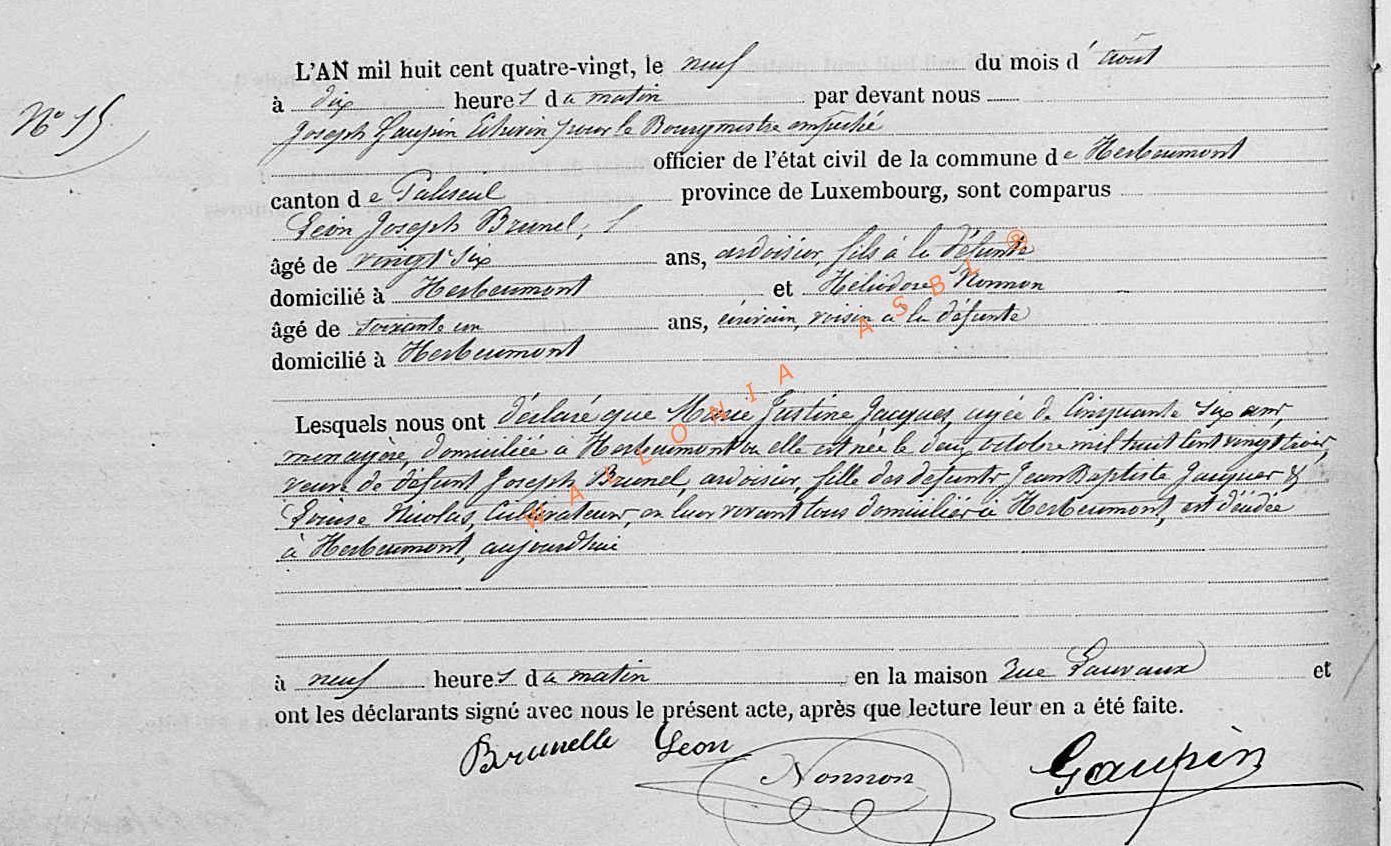 N° 15
L'AN mil huit cent quatre-vingt, le neuf du mois d'août
à dix heures du matin par devant nous
Joseph Gaupin Echevin pour le Bourgmestre empêché
officier de l'état civil de la commune de Herbeumont
canton de Paliseul province de Luxembourg, sont comparus
Léon Joseph Brunel,
âgé de vingt six ans, ardoisier, fils à la défunte
domicilié à Herbeumont et Héliodore Nonnon
âgé de soixante un ans, écrivain, voisin à la défunte
domicilié à Herbeumont
Lesquels nous ont déclaré que Marie Justine Jacques, agée de Cinquante six ans,
menagère, domiciliée à Herbeumont ou elle est née le deux octobre mil huit cent vingt trois,
veuve de défunt Joseph Brunel, ardoisier, fille des defunts Jean Baptiste Jacques &
Louise Nicolas, Cultivateurs, en leur vivant tous domiciliés à Herbeumont, est décédée
à Herbeumont, aujourdhui
à neuf heures du matin en la maison Rue Lauvaux et
ont les déclarants signé avec nous le présent acte, après que lecture leur en a été faite.
Brunelle Léon Nonnon Gaupin
WALLONIA ASBL ®